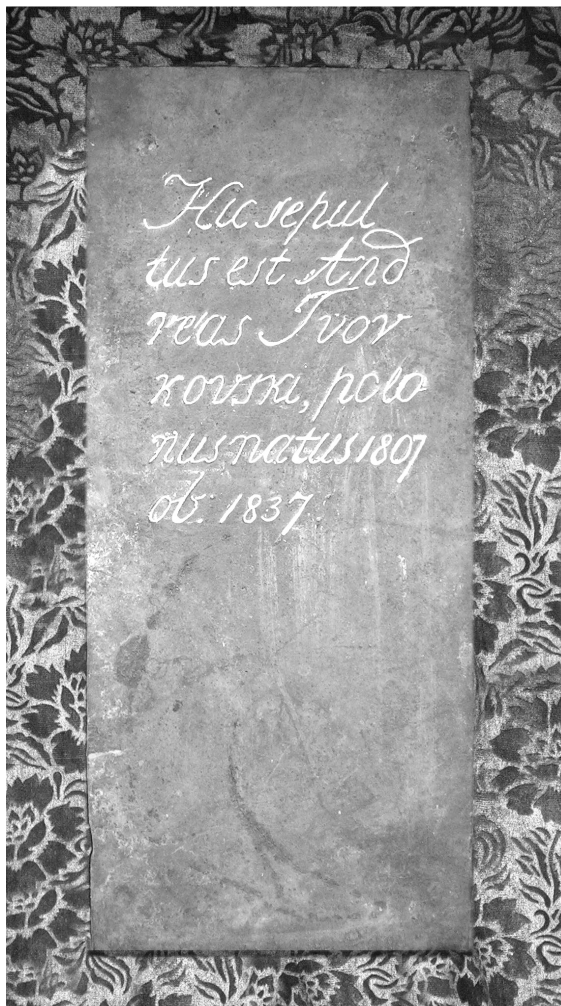 Hic sepul
tus est And
reas Tvor
kovski, polo
nus natus 1807
ob: 1837